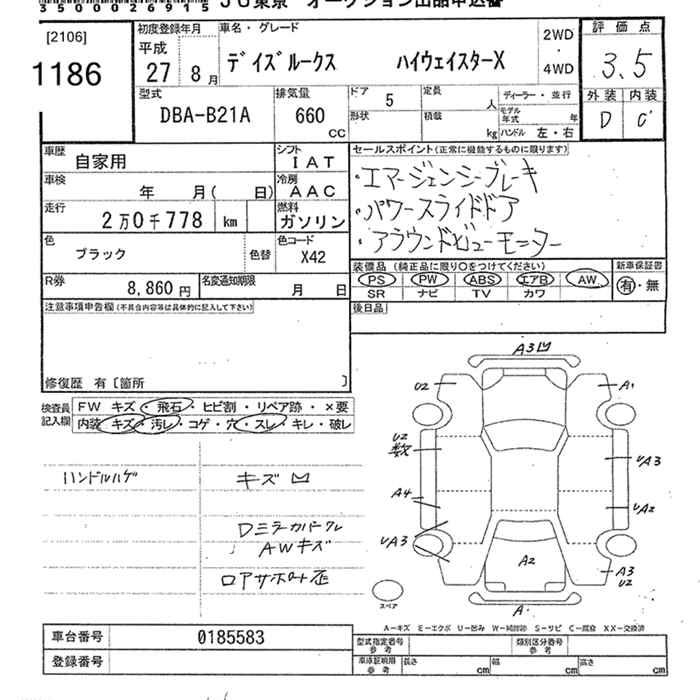 35000026915 JU東京 オークション出品申込書
[2106]
1186
初度登録年月
平成
27 8月
車名・グレード
デイズルークス ハイウェイスターX
2WD
4WD
評価点
3.5
外装 内装
D C
型式
DBA-B21A
排気量
660
cc
ドア
5
形状
定員
人
積載
kg
ディーラー・並行
モデル年式 年
ハンドル 左・右
車歴
自家用
シフト
IAT
車検
年 月( 日)
冷房
AAC
走行
2万0千778 km
燃料
ガソリン
色
ブラック
色替
色コード
X42
R券
8,860円
名変通知期限
月 日
セールスポイント(正常に機能するものに限ります)
・エマージェンシーブレーキ
・パワースライドドア
・アラウンドビューモニター
装備品(純正品に限り○をつけてください)
PS PW ABS エアB AW
SR ナビ TV カワ
新車保証書
有・無
後日品
注意事項申告欄(不具合内容等は具体的に記入して下さい)
修復歴 有〔箇所 〕
検査員記入欄
FW キズ・飛石・ヒビ割・リペア跡・×要
内装 キズ・汚レ・コゲ・穴・スレ・キレ・破レ
ハンドルハゲ
キズ凹
Dミラーカバークレ
AWキズ
ロアサポート歪
A3凹
U2
A1
U2
数
UA3
A4
UA2
UA3
A2
A3
U2
A
スペア
A-キズ E-エクボ U-凹み W-補修跡 S-サビ C-腐蝕 XX-交換済
車台番号 0185583
登録番号
型式指定番号 参考
類別区分番号 参考
車庫証明用 参考
長さ cm
幅 cm
高さ cm